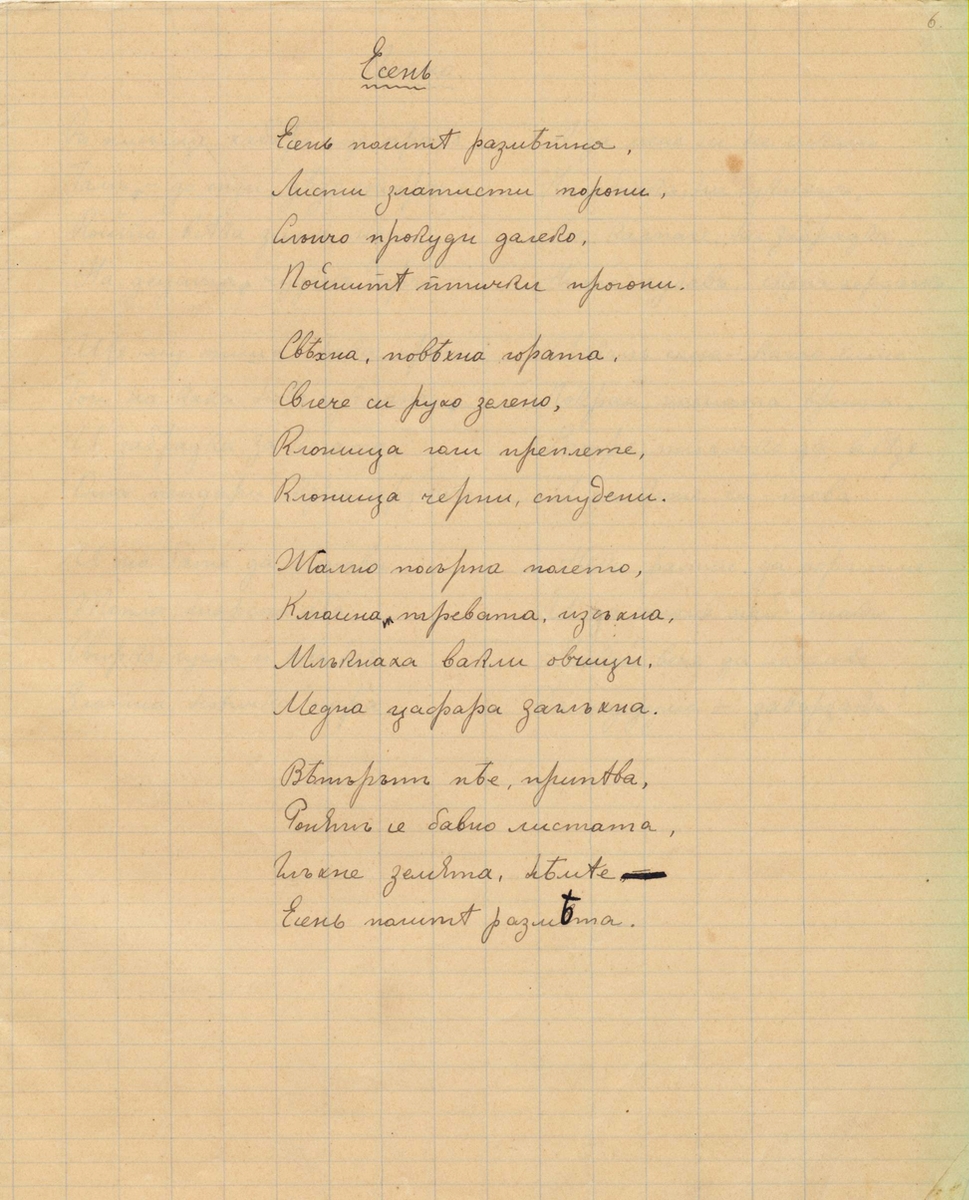 6.
Есень
Есень политѣ размѣтна,
Листи златисти порони,
Слънчо прокуди далеко,
Пойнитѣ птички прогони.
Свѣхна, повѣхна гората,
Свлече си рухо зелено,
Клонища голи преплете,
Клонища черни, студени.
Жално посърна полето,
Клюмна, тревата, изсъхна,
Млъкнаха вакли овчици,
Медна цафара заглъхна.
Вѣтърътъ пѣе, припѣва,
Ронятъ се бавно листата,
Глъхне земята,
Есень политѣ размѣта.